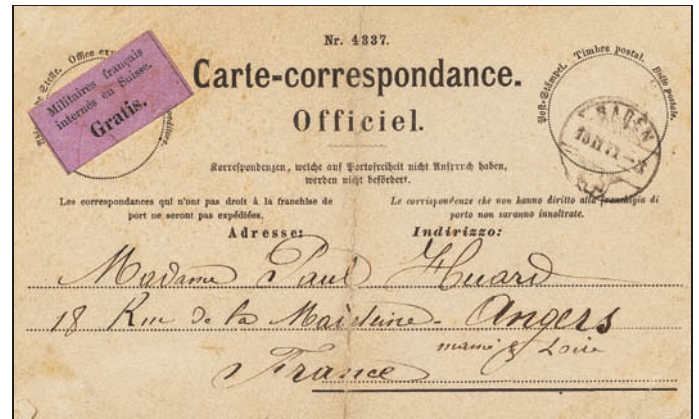 Nr. 4337.
Militaires français
internés en Suisse.
Gratis.
Carte-correspondance.
Officiel.
Post-Stempel. Timbre postal. Bollo postale.
BADEN
Korrespondenzen, welche auf Portofreiheit nicht Anspruch haben,
werden nicht befördert.
Les correspondances qui n'ont pas droit à la franchise de
port ne seront pas expédiées.
Le corrispondenze che non hanno diritto alla franchigia di
porto non saranno innoltrate.
Adresse:
Indirizzo:
Madame Paul Huard
18 Rue de la Madeleine - Angers
maine & Loire
France